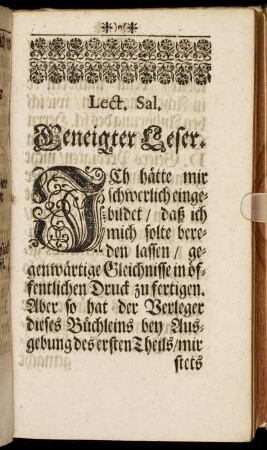 Lect. Sal.
Geneigter Leser.
ICh hätte mir
schwerlich einge-
bildet / daß ich
mich solte bere-
den lassen / ge-
genwärtige Gleichnisse in öf-
fentlichen Druck zu fertigen.
Aber so hat der Verleger
dieses Büchleins bey Aus-
gebung des ersten Theils / mir
stets